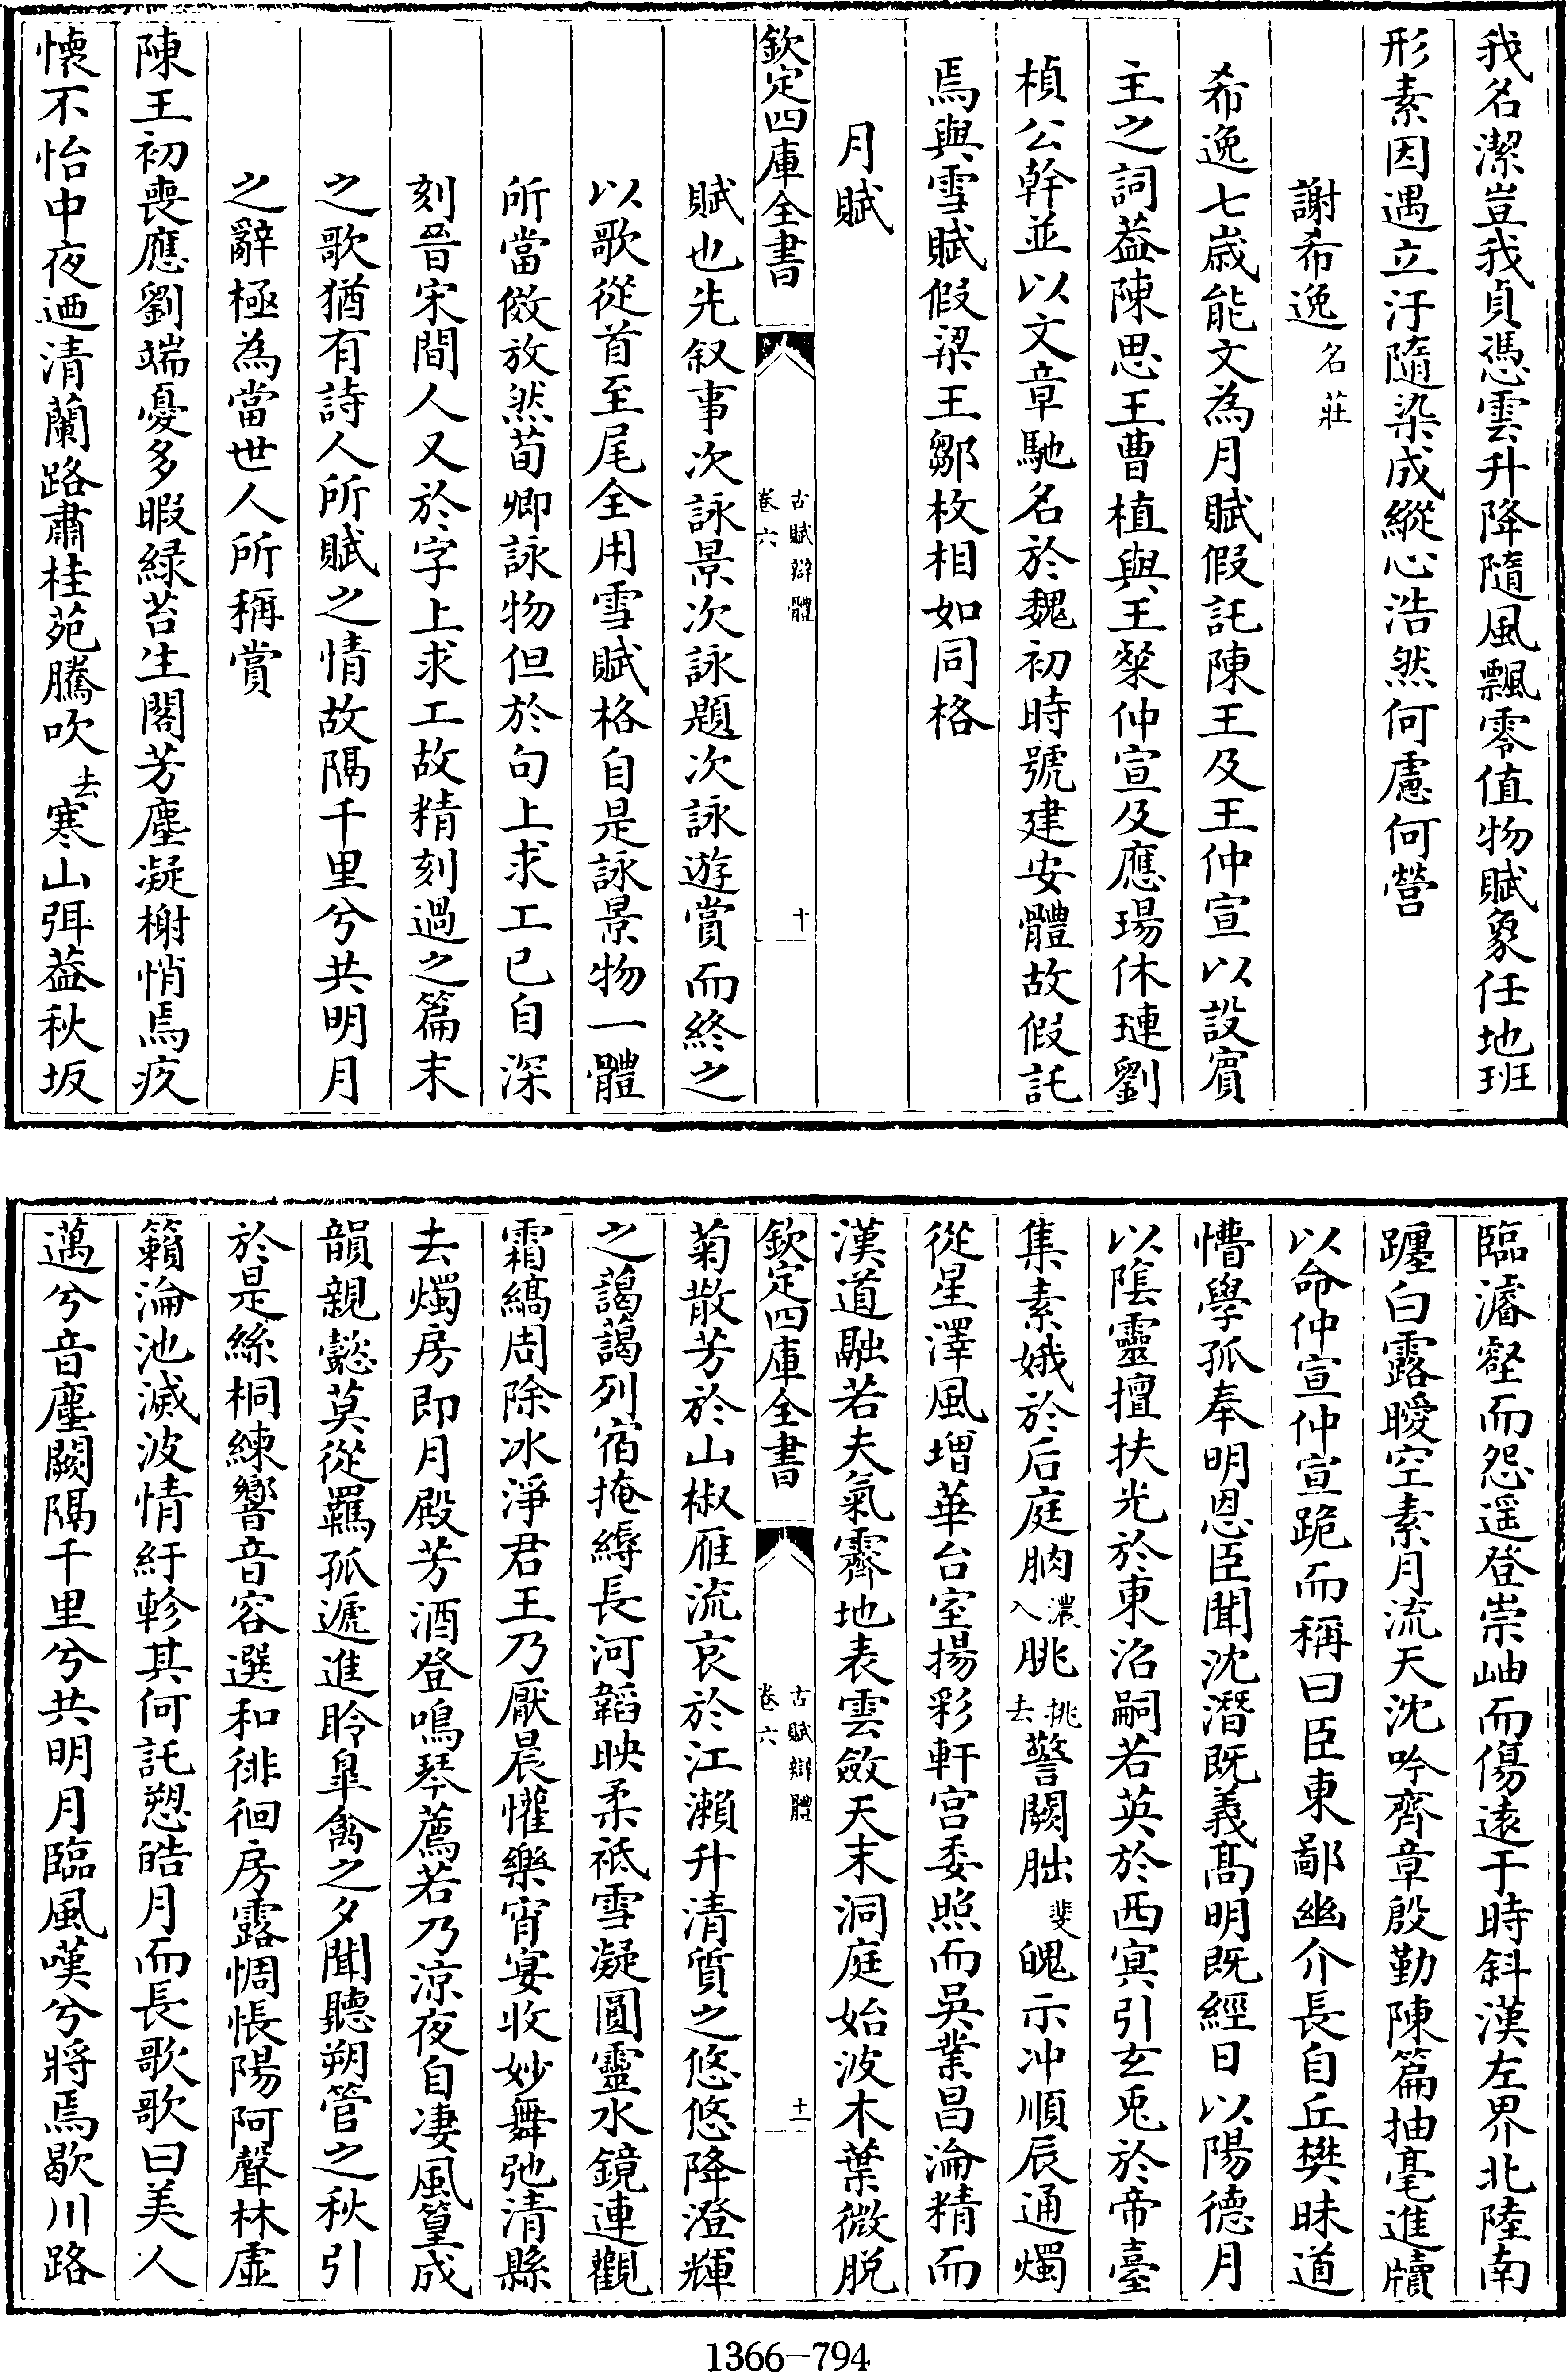 我名潔豈我貞憑雲升降隨風飄零值物賦象任地班
形素因遇立汙隨染成縱心浩然何慮何營
謝希逸名莊
希逸七歲能文為月賦假託陳王及王仲宣以設賔
主之詞葢陳思王曹植與王粲仲宣及應瑒休璉劉
楨公幹並以文章馳名於魏初時號建安體故假託
焉與雪賦假梁王鄒枚相如同格
月賦
欽定四庫全書
古賦辯體
卷六
十
賦也先叙事次詠景次詠題次詠遊賞而終之
以歌從首至尾全用雪賦格自是詠景物一體
所當倣放然荀卿詠物但於句上求工已自深
刻晉宋間人又於字上求工故精刻過之篇末
之歌猶有詩人所賦之情故隔千里兮共明月
之辭極為當世人所稱賞
陳王初喪應劉端憂多暇緑苔生閣芳塵凝榭悄焉疚
懷不怡中夜迺清蘭路肅桂苑騰吹去寒山弭葢秋坂
臨濬壑而怨遥登崇岫而傷逺于時斜漢左界北陸南
躔白露曖空素月流天沈吟齊章殷勤陳篇抽毫進牘
以命仲宣仲宣跪而稱曰臣東鄙幽介長自丘樊昧道
懵學孤奉明恩臣聞沈潛既義髙明既經日以陽德月
以隂靈擅扶光於東沼嗣若英於西㝠引玄兎於帝臺
集素娥於后庭朒濃入朓挑去警闕朏斐魄示冲順辰通燭
從星澤風增華台室揚彩軒宫委照而吳業昌淪精而
漢道融若夫氣霽地表雲斂天末洞庭始波木葉微脱
欽定四庫全書
古賦辯體
卷六
十一
菊散芳於山椒雁流哀於江瀨升清質之悠悠降澄輝
之藹藹列宿掩縟長河韜映柔祇雪凝圓靈水鏡連觀
霜縞周除冰淨君王乃厭晨懽樂宵宴收妙舞弛清縣
去燭房即月殿芳酒登鳴琴薦若乃涼夜自凄風篁成
韻親懿莫從羈孤遞進聆臯禽之夕聞聽朔管之秋引
於是絲桐練響音容選和徘徊房露惆悵陽阿聲林虛
籟淪池滅波情紆軫其何託愬皓月而長歌歌曰美人
邁兮音塵闕隔千里兮共明月臨風嘆兮將焉歇川路
1366-794